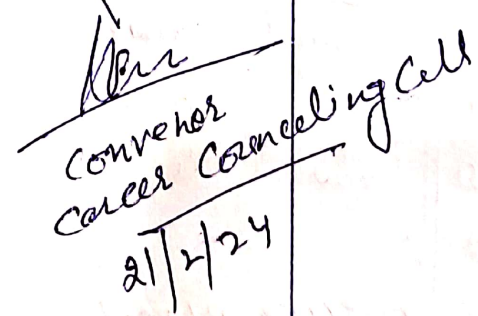 Convenor
Career Counceling Cell
21/2/24